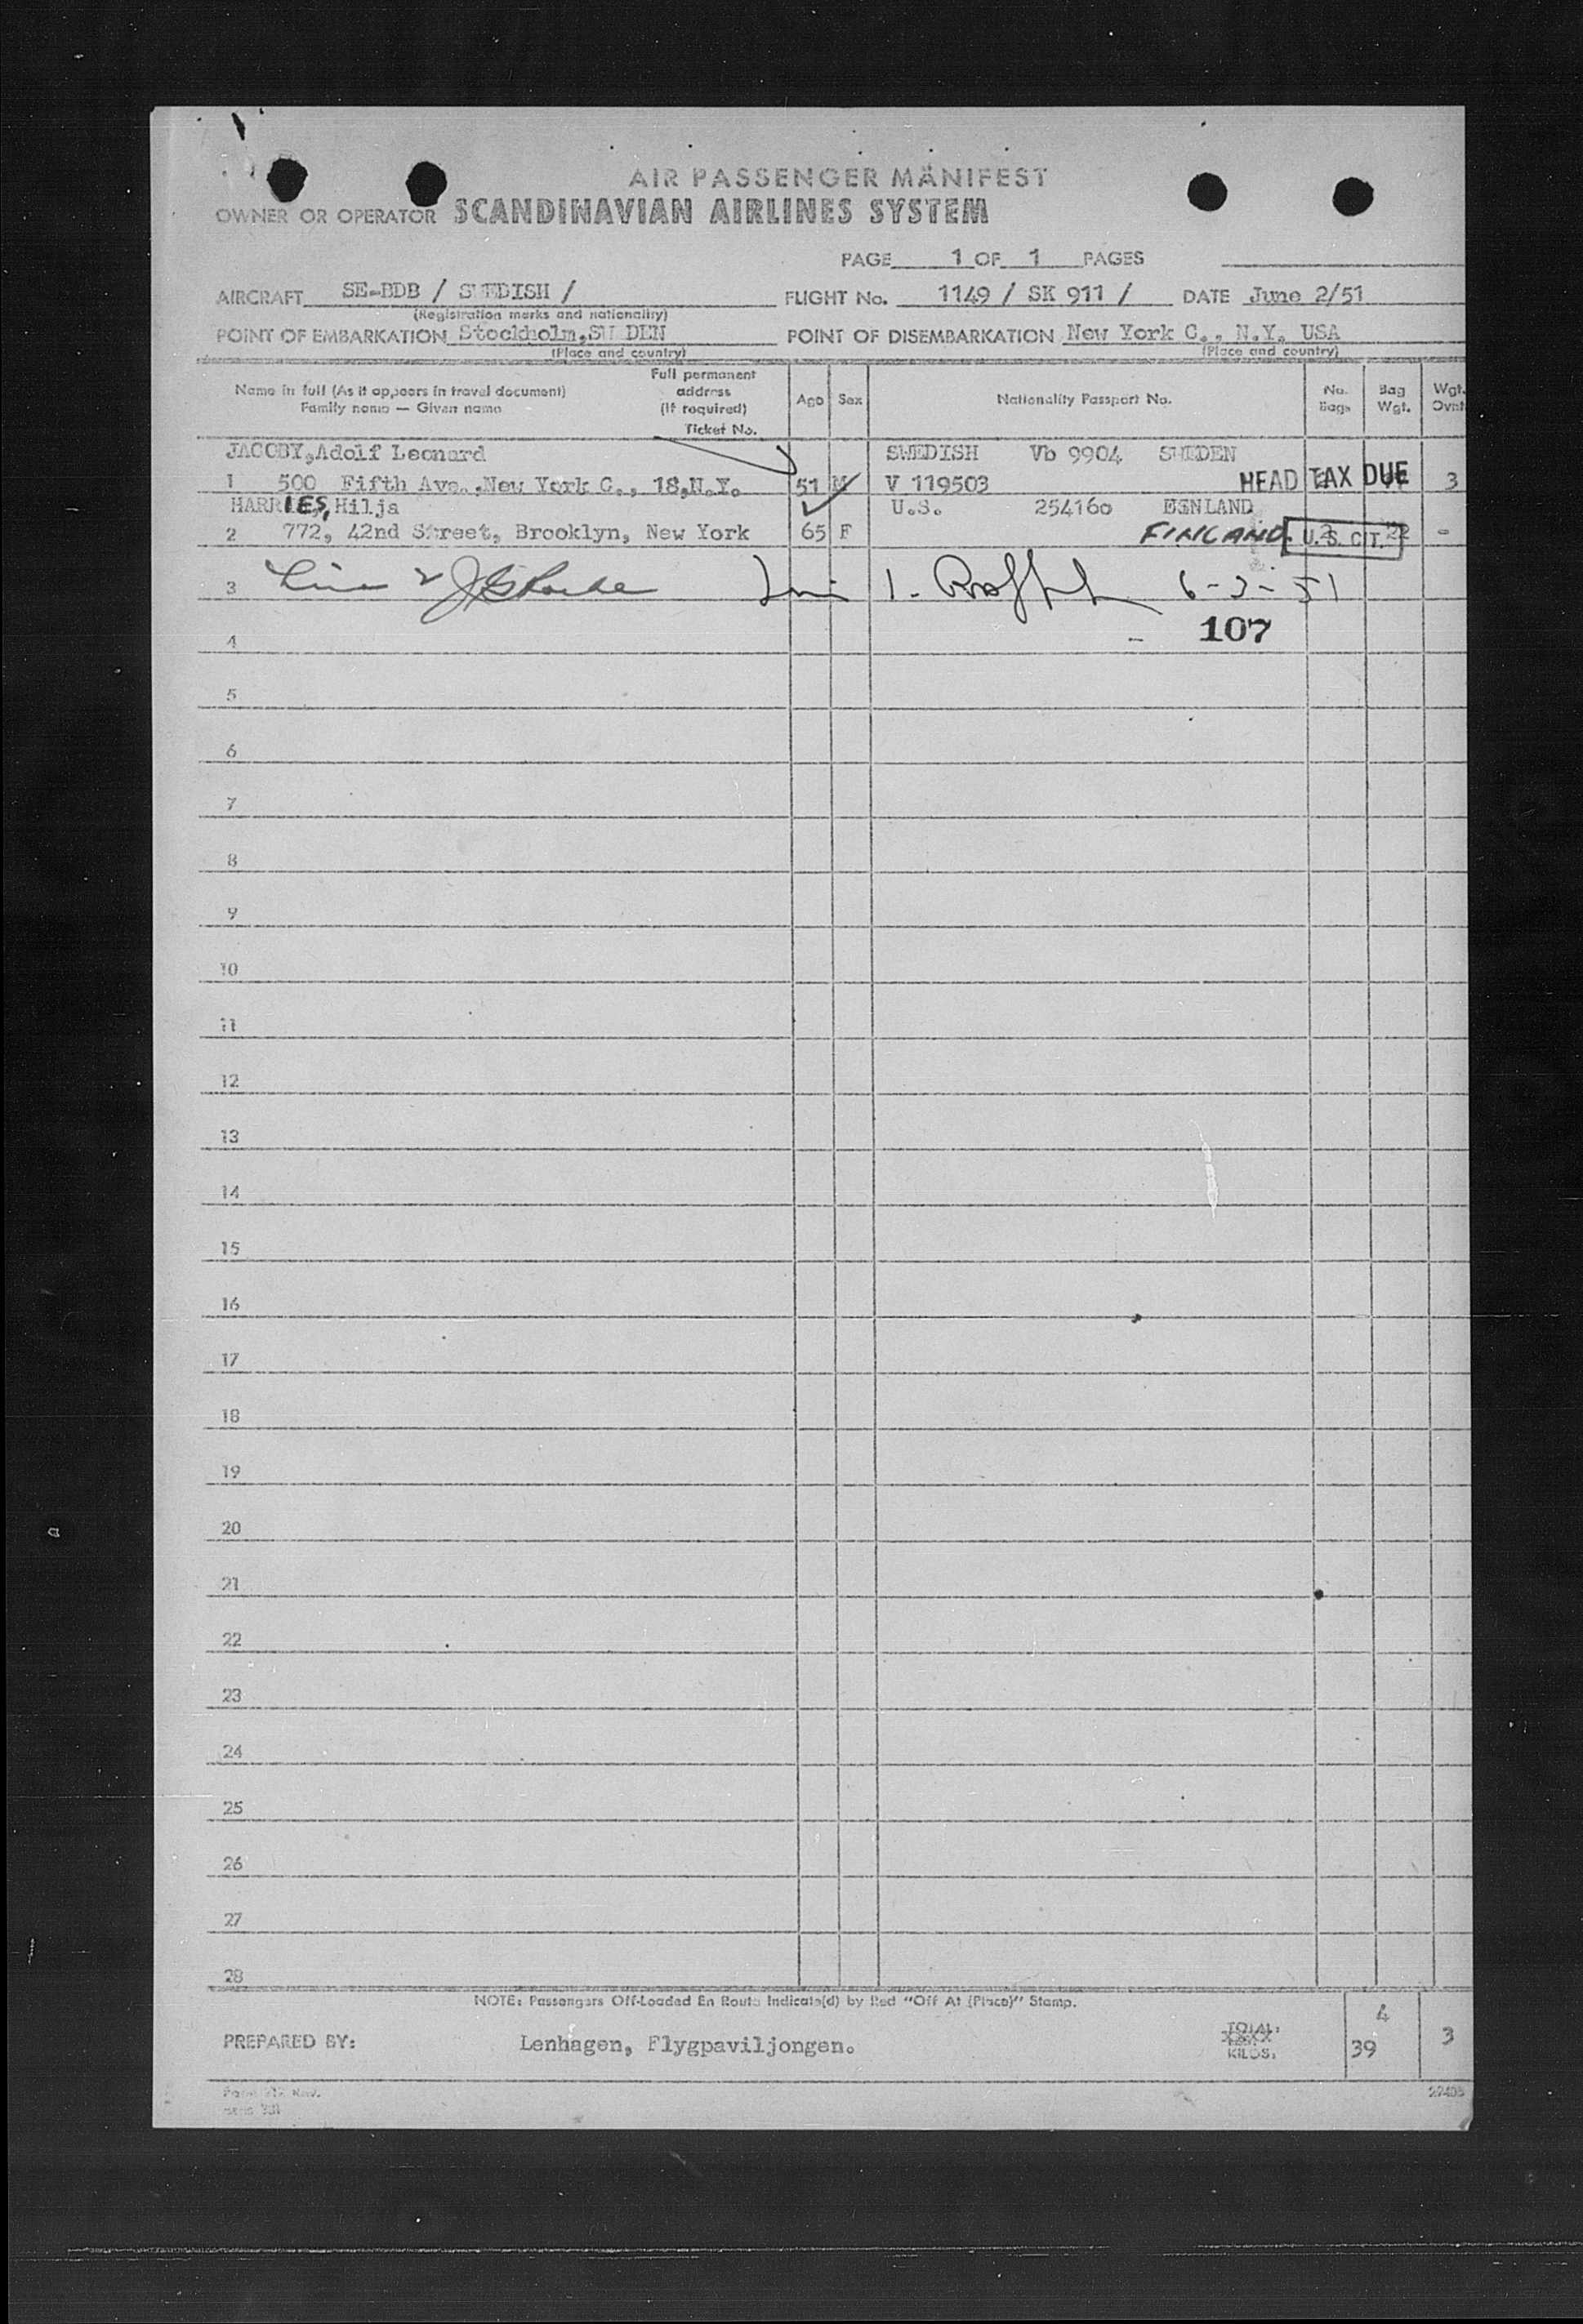 AIR PASSENGER MANIFEST
OWNER OR OPERATOR SCANDINAVIAN AIRLINES SYSTEM
PAGE 1 OF 1 PAGES
AIRCRAFT SE-BDB / SWEDISH / FLIGHT No. 1149 / SK 911 / DATE June 2/51
(Registration marks and nationality)
POINT OF EMBARKATION Stockholm,SW DEN POINT OF DISEMBARKATION New York C., N.Y. USA
(Place and country) (Place and country)
Name in full (As it appears in travel document) Family name — Given name
Full permanent address (If required) Ticket No.
Age Sex Nationality Passport No. No. Bags Bag Wgt. Wgt. Ovnt
JACOBY,Adolf Leonard SWEDISH Vb 9904 SWEDEN
1 500 Fifth Ave.,New York C., 18,N.Y. 51 M V 119503 HEAD TAX DUE 3
HARRIES, Hilja U.S. 254160
2 772, 42nd Street, Brooklyn, New York 65 F FINLAND 2 U.S. CIT. 22 -
3 Line 2 Line 1 - 6-2-51
4 - 107
5
6
7
8
9
10
11
12
13
14
15
16
17
18
19
20
21
22
23
24
25
26
27
28
NOTE: Passengers Off-Loaded En Route Indicate(d) by Red "Off At (Place)" Stamp.
PREPARED BY: Lenhagen, Flygpaviljongen. TOTAL: KILOS. 4 39 3